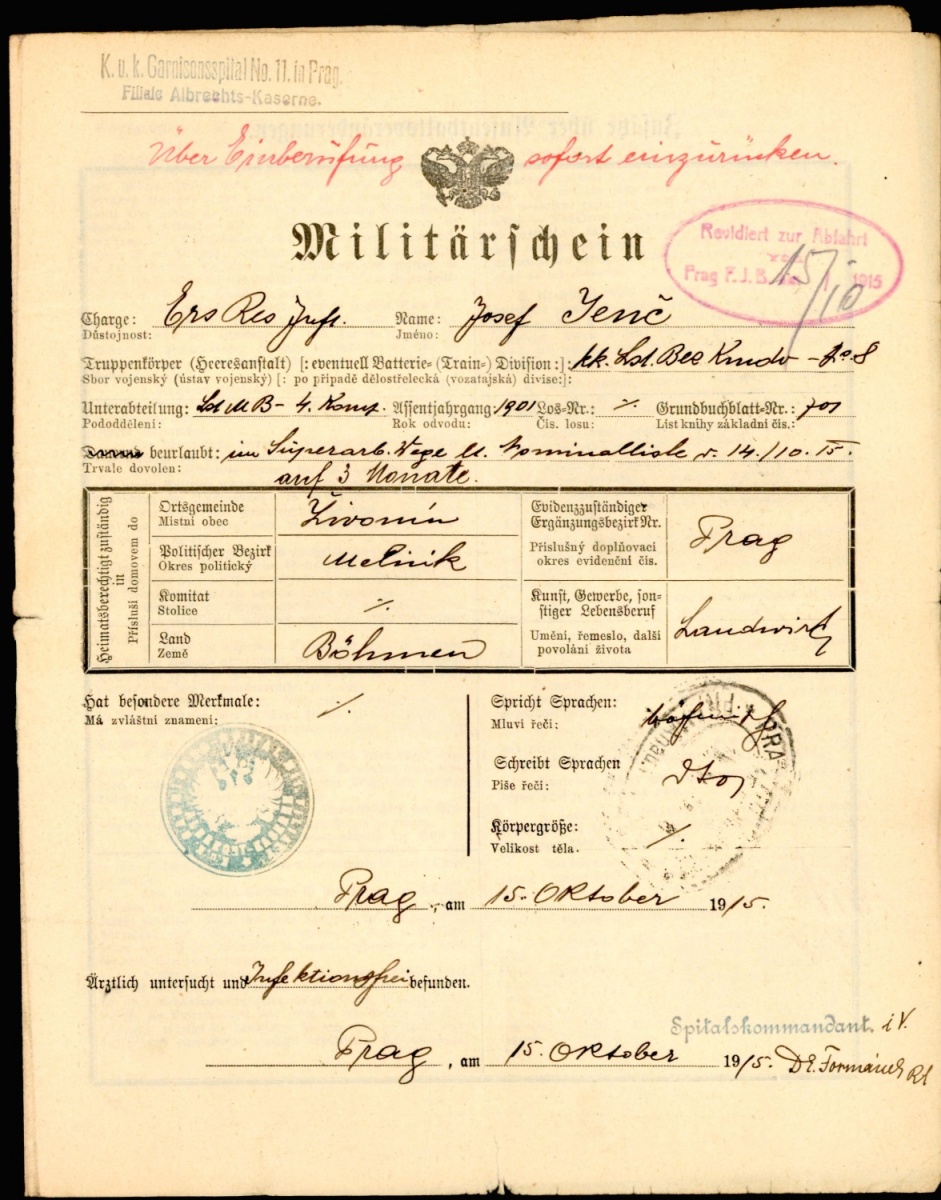 K. u. k. Garnisonsspital No. 11. in Prag.
Filiale Albrechts-Kaserne.
Über Einberufung sofort einzurücken.
Militärschein
Revidiert zur Abfahrt
Prag F. J. B. 15/10 1915
Charge: Ers Res Inft. Name: Josef Jenč
Důstojnost: Jméno:
Truppenkörper (Heeresanstalt) [: eventuell Batterie- (Train-) Division :]: kk. Lst. Bez Kmdo - No 8
Sbor vojenský (ústav vojenský) [: po případě dělostřelecká (vozatajská) divise:]:
Unterabteilung: Lst M B - 4. Komp. Assentjahrgang 1901 Los-Nr.: ·/. Grundbuchblatt-Nr.: 701
Pododdělení: Rok odvodu: Čís. losu: List knihy základní čís.:
beurlaubt: im Superarb. Wege lt. Nominalliste v. 14./10. 15.
Trvale dovolen: auf 3 Monate.
Heimatsberechtigt zuständig in
Přísluší domovem do
Ortsgemeinde Živonín
Místní obec
Politischer Bezirk Melnik
Okres politický
Komitat ·/.
Stolice
Land Böhmen
Země
Evidenzzuständiger
Ergänzungsbezirk Nr. Prag
Příslušný doplňovací
okres evidenční čís.
Kunst, Gewerbe, son-
stiger Lebensberuf Landwirt
Umění, řemeslo, další
povolání života
Hat besondere Merkmale: ·/.
Má zvláštní znamení:
Spricht Sprachen:
Mluví řečí:
Schreibt Sprachen dto
Píše řečí:
Körpergröße: ·/.
Velikost těla.
Prag, am 15. Oktober 1915.
Ärztlich untersucht und Infektionsfrei befunden.
Spitalskommandant. i. V.
Prag, am 15. Oktober 1915. Dr. Formánek